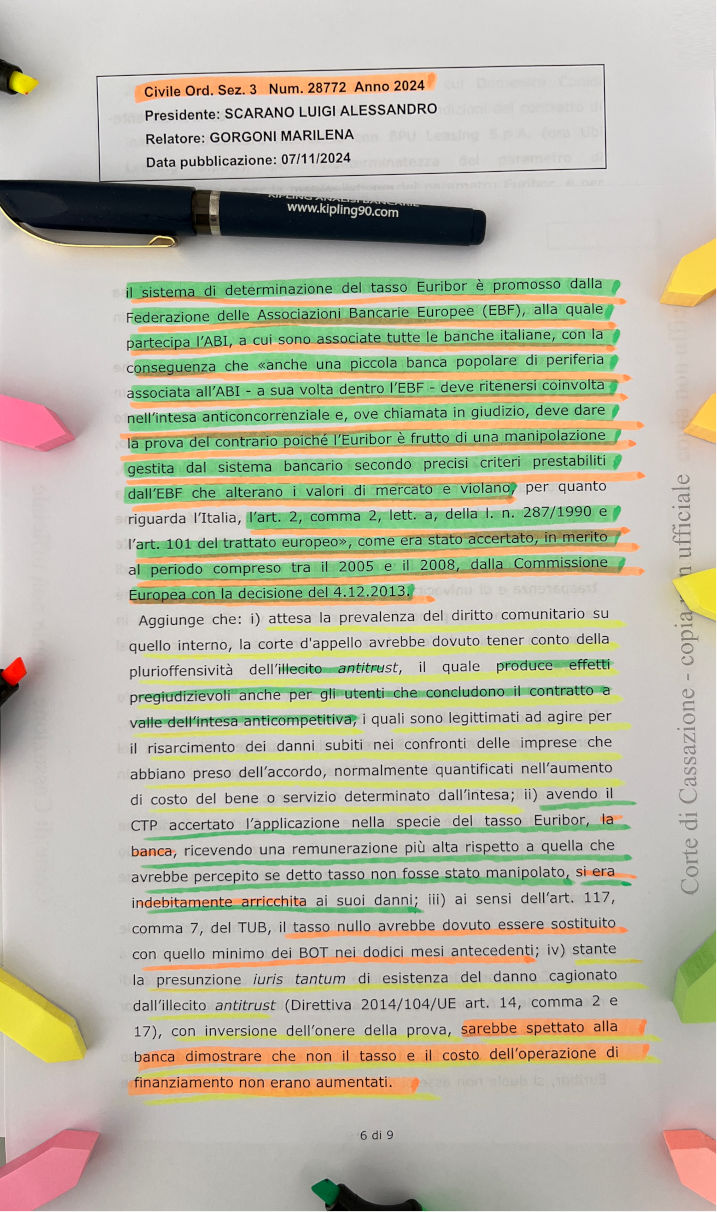 Civile Ord. Sez. 3 Num. 28772 Anno 2024
Presidente: SCARANO LUIGI ALESSANDRO
Relatore: GORGONI MARILENA
Data pubblicazione: 07/11/2024
KIPLING ANALISI BANCARIE
www.kipling90.com
il sistema di determinazione del tasso Euribor è promosso dalla
Federazione delle Associazioni Bancarie Europee (EBF), alla quale
partecipa l'ABI, a cui sono associate tutte le banche italiane, con la
conseguenza che «anche una piccola banca popolare di periferia
associata all'ABI - a sua volta dentro l'EBF - deve ritenersi coinvolta
nell'intesa anticoncorrenziale e, ove chiamata in giudizio, deve dare
la prova del contrario poiché l'Euribor è frutto di una manipolazione
gestita dal sistema bancario secondo precisi criteri prestabiliti
dall'EBF che alterano i valori di mercato e violano, per quanto
riguarda l'Italia, l'art. 2, comma 2, lett. a, della l. n. 287/1990 e
l'art. 101 del trattato europeo», come era stato accertato, in merito
al periodo compreso tra il 2005 e il 2008, dalla Commissione
Europea con la decisione del 4.12.2013.
Aggiunge che: i) attesa la prevalenza del diritto comunitario su
quello interno, la corte d'appello avrebbe dovuto tener conto della
plurioffensività dell'illecito antitrust, il quale produce effetti
pregiudizievoli anche per gli utenti che concludono il contratto a
valle dell'intesa anticompetitiva, i quali sono legittimati ad agire per
il risarcimento dei danni subiti nei confronti delle imprese che
abbiano preso dell'accordo, normalmente quantificati nell'aumento
di costo del bene o servizio determinato dall'intesa; ii) avendo il
CTP accertato l'applicazione nella specie del tasso Euribor, la
banca, ricevendo una remunerazione più alta rispetto a quella che
avrebbe percepito se detto tasso non fosse stato manipolato, si era
indebitamente arricchita ai suoi danni; iii) ai sensi dell'art. 117,
comma 7, del TUB, il tasso nullo avrebbe dovuto essere sostituito
con quello minimo dei BOT nei dodici mesi antecedenti; iv) stante
la presunzione iuris tantum di esistenza del danno cagionato
dall'illecito antitrust (Direttiva 2014/104/UE art. 14, comma 2 e
17), con inversione dell'onere della prova, sarebbe spettato alla
banca dimostrare che non il tasso e il costo dell'operazione di
finanziamento non erano aumentati.
6 di 9
Corte di Cassazione - copia non ufficiale